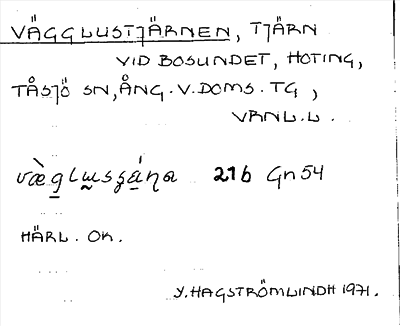 VÄGGLUSTJÄRNEN, TJÄRN
VID BOSUNDET, HOTING,
TÅSJÖ SN, ÅNG. V. DOMS. TG,
VRNL.L.
21b Gn 54
HÄRL. OK.
Y. HAGSTRÖMLINDH 1971.